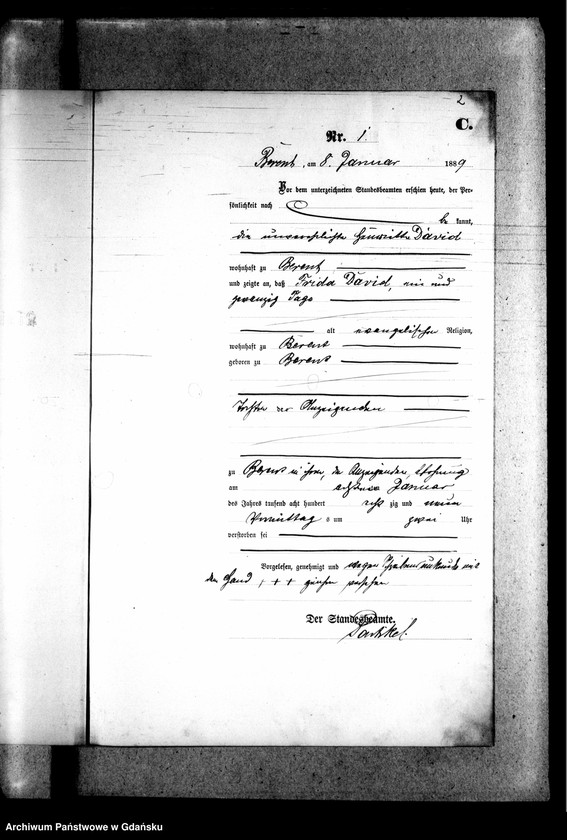 2
C.
Nr. 1.
Berent, am 8. Januar 1889
Vor dem unterzeichneten Standesbeamten erschien heute, der Per-
sönlichkeit nach
be kannt,
die unverehelichte Henriette David
wohnhaft zu Berent
und zeigte an, daß Frida David, ein und
zwanzig Tage
alt evangelischer Religion,
wohnhaft zu Berent
geboren zu Berent
Tochter der Anzeigenden
zu Berent in ihrer, der Anzeigenden, Wohnung
am achten Januar
des Jahres tausend acht hundert acht zig und neun
Vormittag s um zwei Uhr
verstorben sei
Vorgelesen, genehmigt und wegen
der Hand, + + +
Der Standesbeamte.
Partikel.
Archiwum Państwowe w Gdańsku